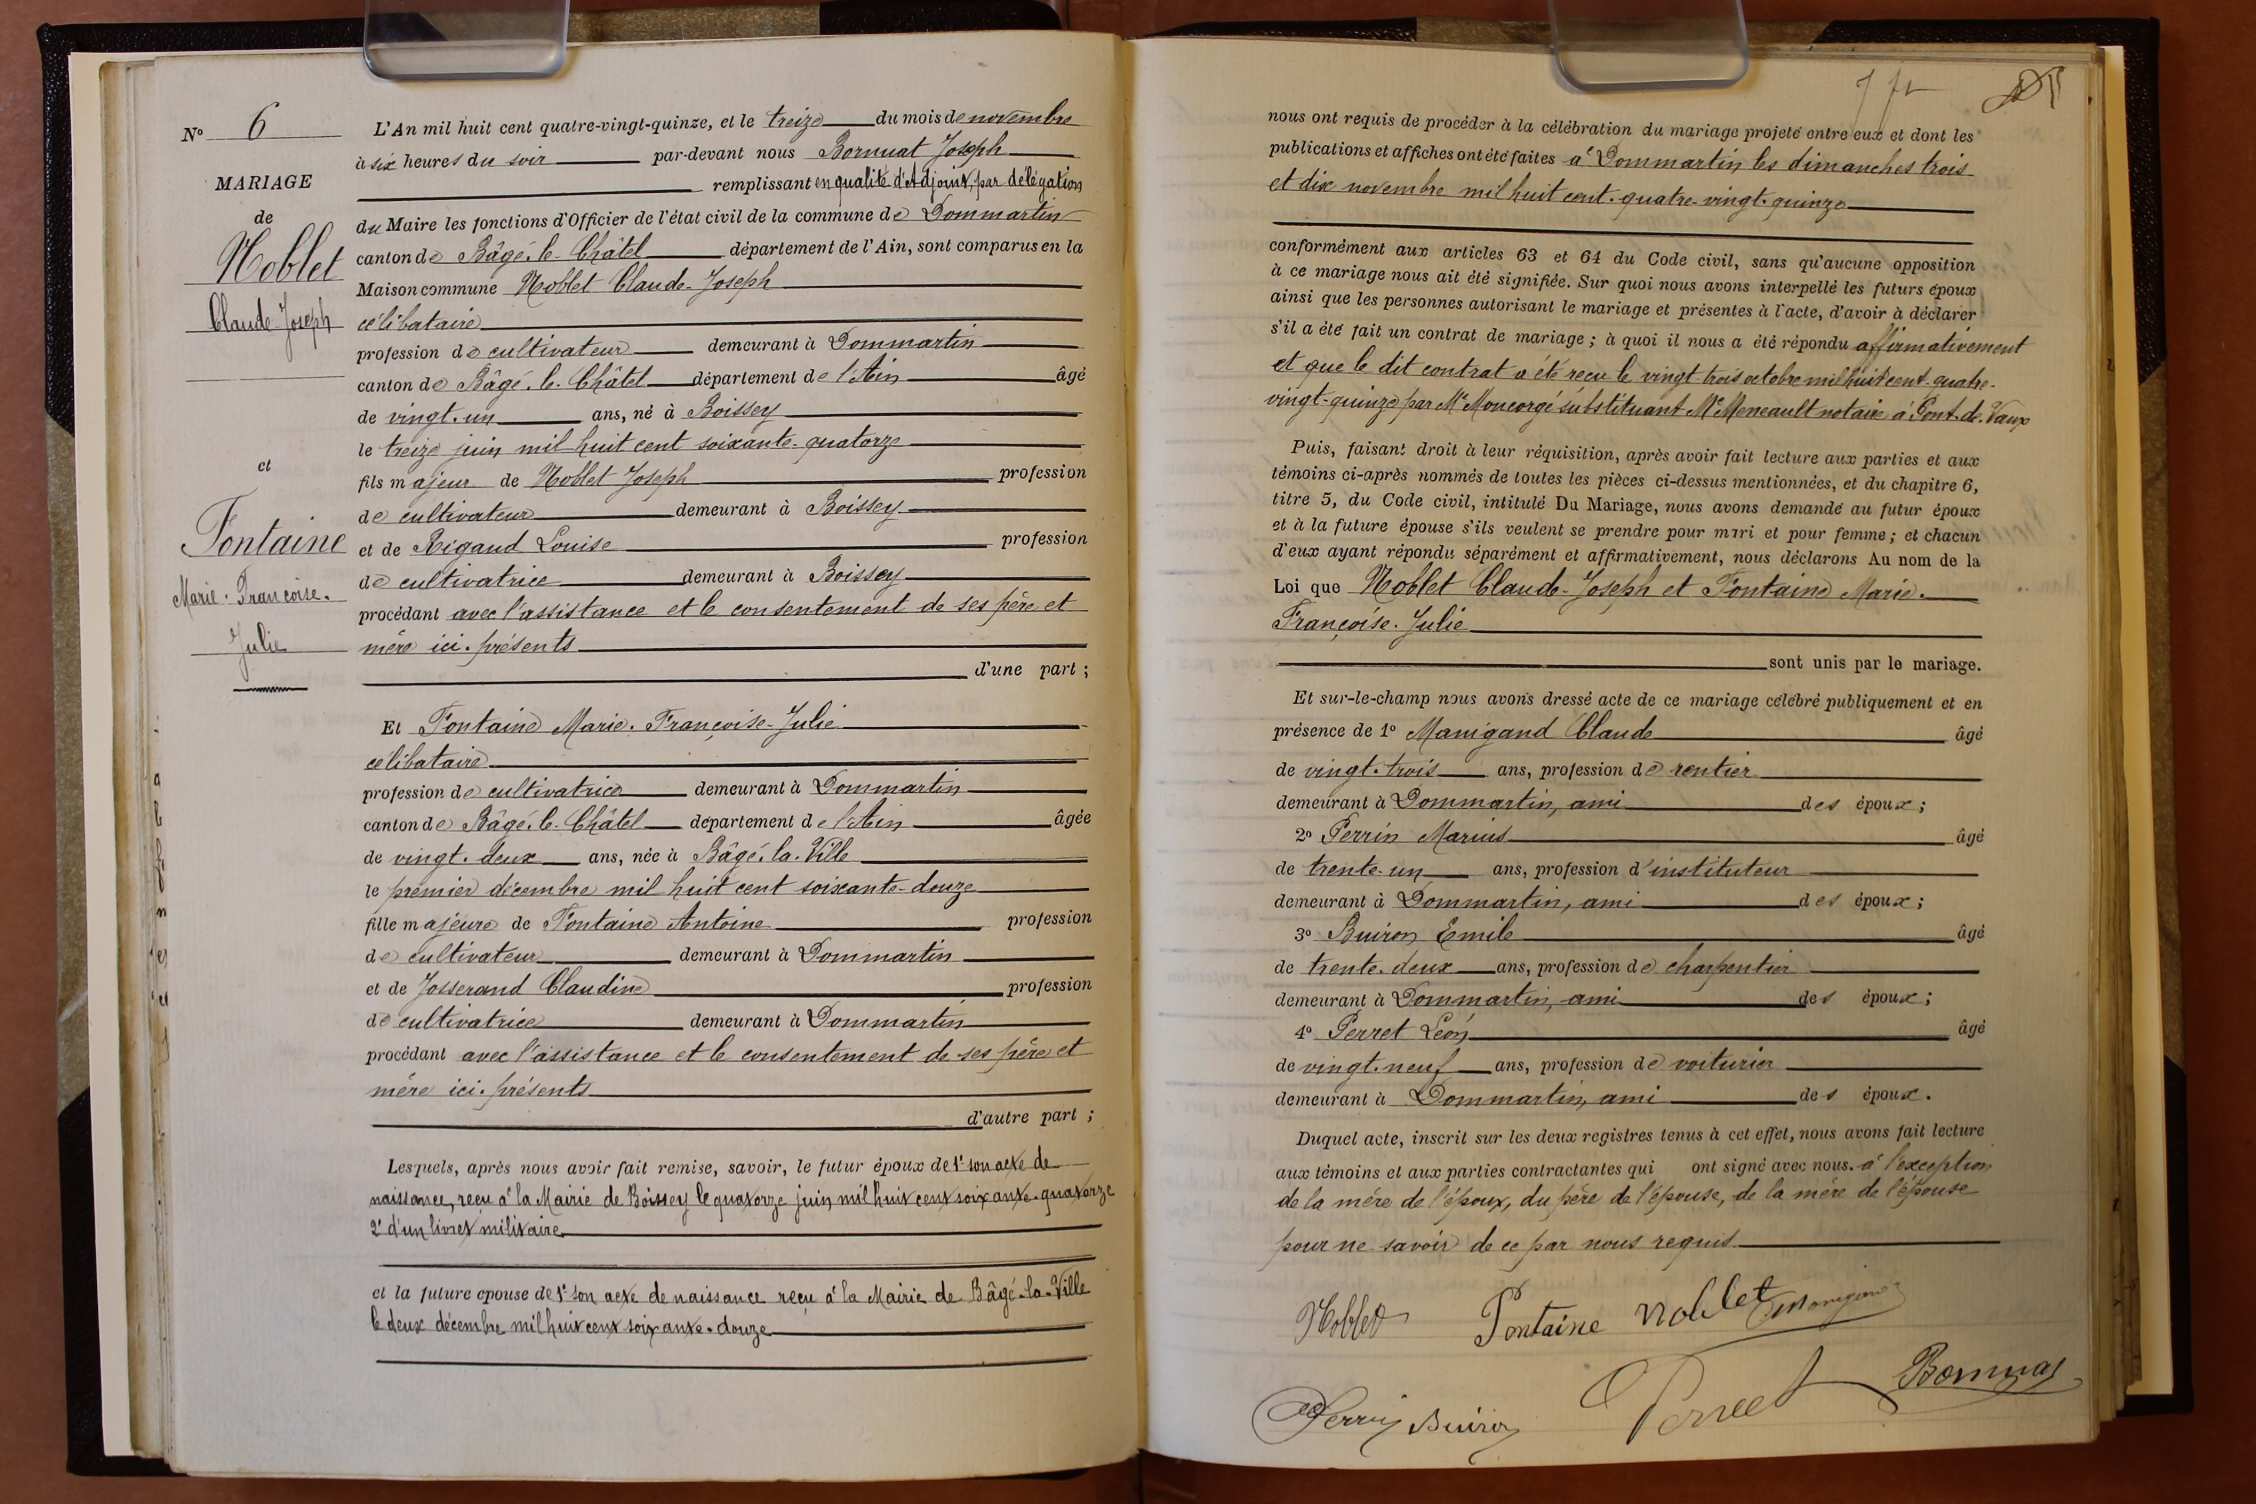 N° 6
MARIAGE
de
Noblet
Claude-Joseph
et
Fontaine
Marie-Françoise-
Julie
L'An mil huit cent quatre-vingt-quinze, et le treize du mois de novembre
à six heures du soir par-devant nous Bornuat Joseph
remplissant en qualité d'Adjoint, par délégation
du Maire les fonctions d'Officier de l'état civil de la commune de Dommartin
canton de Bâgé-le-Châtel département de l'Ain, sont comparus en la
Maison commune Noblet Claude-Joseph
célibataire
profession de cultivateur demeurant à Dommartin
canton de Bâgé-le-Châtel département de l'Ain âgé
de vingt-un ans, né à Boissey
le treize juin mil huit cent soixante-quatorze
fils majeur de Noblet Joseph profession
de cultivateur demeurant à Boissey
et de Rigaud Louise profession
de cultivatrice demeurant à Boissey
procédant avec l'assistance et le consentement de ses père et
mère ici-présents
d'une part ;
Et Fontaine Marie-Françoise-Julie
célibataire
profession de cultivatrice demeurant à Dommartin
canton de Bâgé-le-Châtel département de l'Ain âgée
de vingt-deux ans, née à Bâgé-la-Ville
le premier décembre mil huit cent soixante-douze
fille majeure de Fontaine Antoine profession
de cultivateur demeurant à Dommartin
et de Josserand Claudine profession
de cultivatrice demeurant à Dommartin
procédant avec l'assistance et le consentement de ses père et
mère ici-présents
d'autre part ;
Lesquels, après nous avoir fait remise, savoir, le futur époux de 1° son acte de
naissance, reçu à la Mairie de Boissey le quatorze juin mil huit cent soixante-quatorze
2° d'un livret militaire
et la future épouse de 1° son acte de naissance reçu à la Mairie de Bâgé-la-Ville
le deux décembre mil huit cent soixante-douze
nous ont requis de procéder à la célébration du mariage projeté entre eux et dont les
publications et affiches ont été faites à Dommartin les dimanches trois
et dix novembre mil huit cent-quatre-vingt-quinze
conformément aux articles 63 et 64 du Code civil, sans qu'aucune opposition
à ce mariage nous ait été signifiée. Sur quoi nous avons interpellé les futurs époux
ainsi que les personnes autorisant le mariage et présentes à l'acte, d'avoir à déclarer
s'il a été fait un contrat de mariage ; à quoi il nous a été répondu affirmativement
et que le dit contrat a été reçu le vingt-trois octobre mil huit cent-quatre-
vingt-quinze par Me Moncorgé substituant Me Meneault notaire à Pont-de-Vaux
Puis, faisant droit à leur réquisition, après avoir fait lecture aux parties et aux
témoins ci-après nommés de toutes les pièces ci-dessus mentionnées, et du chapitre 6,
titre 5, du Code civil, intitulé Du Mariage, nous avons demandé au futur époux
et à la future épouse s'ils veulent se prendre pour mari et pour femme ; et chacun
d'eux ayant répondu séparément et affirmativement, nous déclarons Au nom de la
Loi que Noblet Claude-Joseph et Fontaine Marie-
Françoise-Julie
sont unis par le mariage.
Et sur-le-champ nous avons dressé acte de ce mariage célébré publiquement et en
présence de 1° Manigand Claude âgé
de vingt-trois ans, profession de rentier
demeurant à Dommartin, ami des époux ;
2° Perrin Marius âgé
de trente-un ans, profession d'instituteur
demeurant à Dommartin, ami des époux ;
3° Buiron Emile âgé
de trente-deux ans, profession de charpentier
demeurant à Dommartin, ami des époux ;
4° Perret Léon âgé
de vingt-neuf ans, profession de voiturier
demeurant à Dommartin, ami des époux.
Duquel acte, inscrit sur les deux registres tenus à cet effet, nous avons fait lecture
aux témoins et aux parties contractantes qui ont signé avec nous. à l'exception
de la mère de l'époux, du père de l'épouse, de la mère de l'épouse
pour ne savoir de ce par nous requis
Noblet Fontaine Noblet Manigand
Perrin Buiron Perret Bornuat